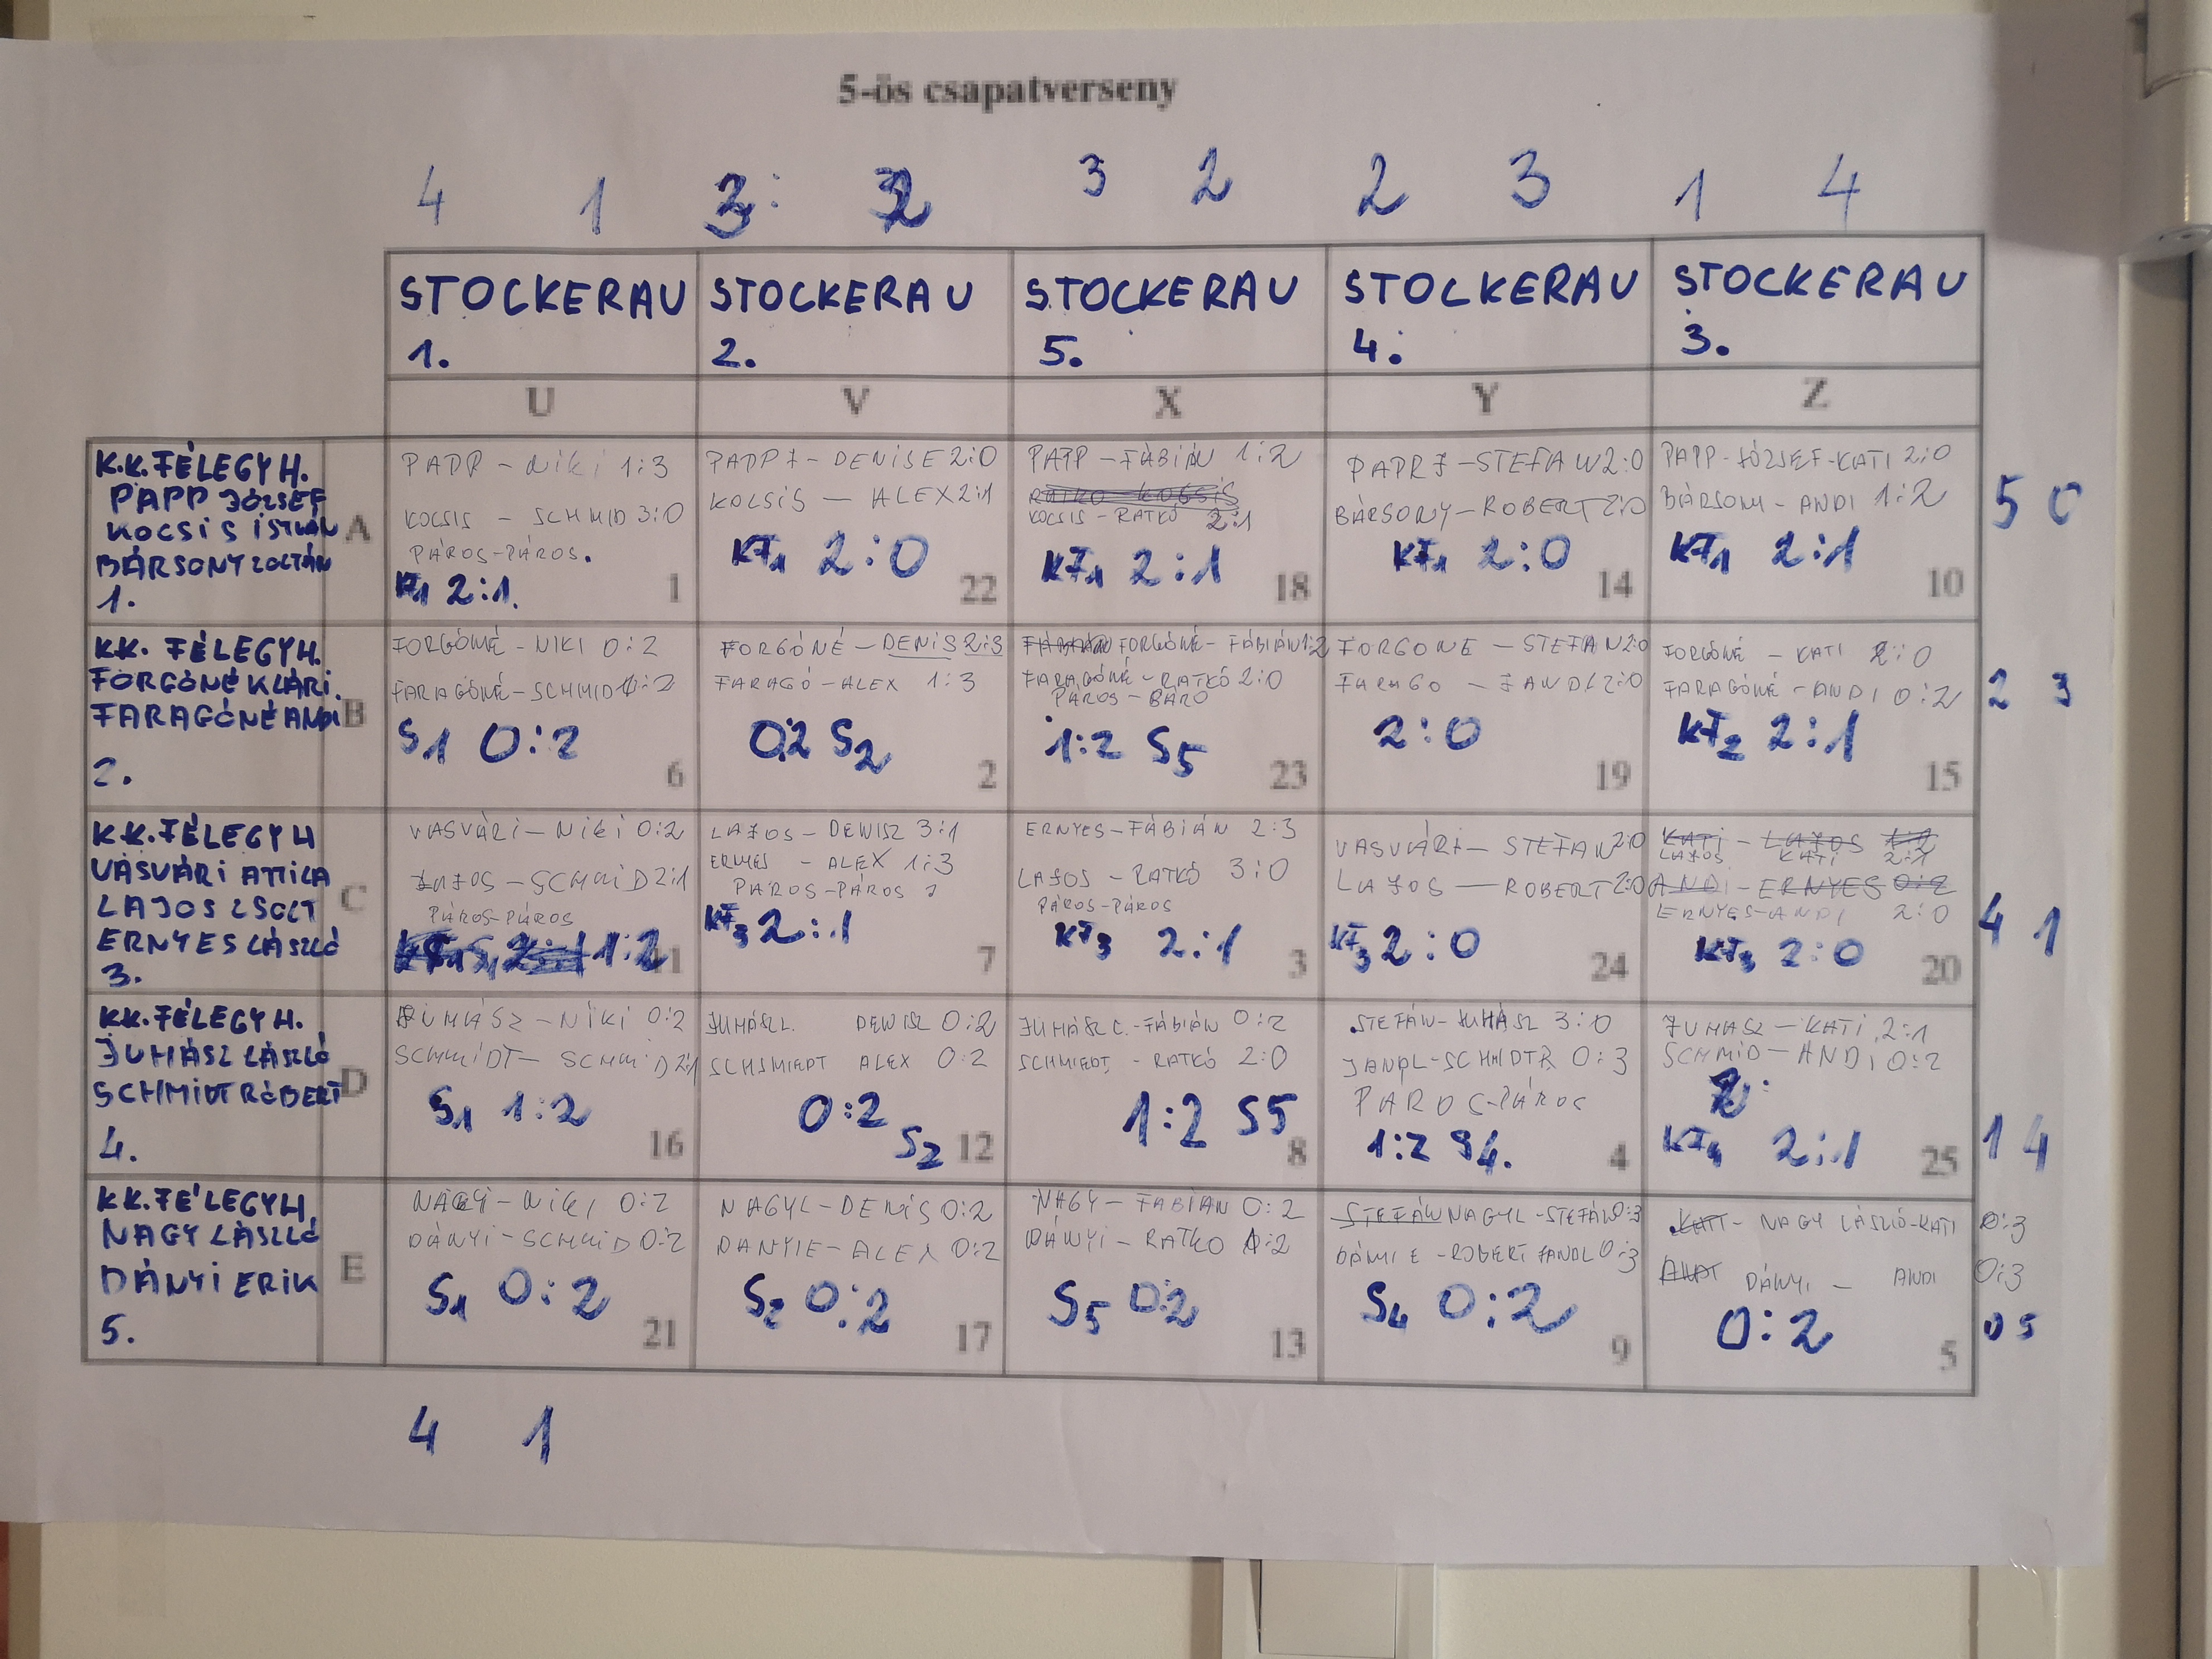 5-ös csapatverseny
4 1 3: 2 3 2 2 3 1 4
STOCKERAU
1.
STOCKERAU
2.
STOCKERAU
5.
STOCKERAU
4.
STOCKERAU
3.
U V X Y Z
K.K.FÉLEGYH.
PAPP JÓZSEF
KOCSIS ISTVÁN
BÁRSONY ZOLTÁN
1.
A
PAPP - NIKI 1:3
KOCSIS - SCHMID 3:0
PÁROS-PÁROS.
2:1.
1
PAPP J - DENISE 2:0
KOCSIS - ALEX 2:1
KF1 2:0
22
PAPP - FÁBIÁN 1:2
KOCSIS - RATKÓ 2:1
KF1 2:1
18
PAPP J - STEFAN 2:0
BÁRSONY - ROBERT 2:0
KF1 2:0
14
PAPP-JÓZSEF-KATI 2:0
BÁRSONY - ANDI 1:2
KF1 2:1
10
5 0
KK. FÉLEGYH.
FORGÓNÉ KLÁRI.
FARAGÓNÉ ANDI
2.
B
FORGÓNÉ - NIKI 0:2
FARAGÓNÉ - SCHMID 0:2
S1 0:2
6
FORGÓNÉ - DENIS 2:3
FARAGÓ - ALEX 1:3
0:2 S2
2
FORGÓNÉ - FÁBIÁN 1:2
FARAGÓNÉ - RATKÓ 2:0
PÁROS - BÁRÓ
1:2 S5
23
FORGONE - STEFAN 2:0
FARAGO - JANDL 2:0
2:0
19
FORGÓNÉ - KATI 2:0
FARAGÓNÉ - ANDI 0:2
KF2 2:1
15
2 3
K.K.FÉLEGYH
VASVÁRI ATTILA
LAJOS ZSOLT
ERNYES LÁSZLÓ
3.
C
VASVÁRI - NIKI 0:2
LAJOS - SCHMID 2:1
PÁROS-PÁROS
1:2
11
LAJOS - DENISZ 3:1
ERNYES - ALEX 1:3
PÁROS-PÁROS
KF3 2:1
7
ERNYES - FÁBIÁN 2:3
LAJOS - RATKÓ 3:0
PÁROS-PÁROS
KF3 2:1
3
VASVÁRI - STEFAN 2:0
LAJOS - ROBERT 2:0
KF3 2:0
24
KATI - LAJOS
LAJOS KATI 2:1
ANDI - ERNYES 0:2
ERNYES-ANDI 2:0
KF3 2:0
20
4 1
KK.FÉLEGYH.
JUHÁSZ LÁSZLÓ
SCHMIDT RÓBERT
4.
D
JUHÁSZ - NIKI 0:2
SCHMIDT - SCHMID 2:1
S1 1:2
16
JUHÁSZ L. DENISZ 0:2
SCHSMIEDT ALEX 0:2
0:2
S2
12
JUHÁSZ L. - FÁBIÁN 0:2
SCHMIEDT - RATKÓ 2:0
1:2 S5
8
STEFÁN - JUHÁSZ 3:0
JANDL - SCHMIDT R 0:3
PÁROS-PÁROS
1:2 S4.
4
JUHASZ - KATI 2:1
SCHMID - ANDI 0:2
KF4 2:1
25
1 4
KK.FÉLEGYH
NAGY LÁSZLÓ
DÁNYI ERIK
5.
E
NAGY - NIKI 0:2
DÁNYI - SCHMID 0:2
S1 0:2
21
NAGY L - DENIS 0:2
DANYI E - ALEX 0:2
S2 0:2
17
NAGY - FABIAN 0:2
DÁNYI - RATKO 0:2
S5 0:2
13
STEFÁN NAGY L - STEFÁN 0:3
DÁNYI E - ROBERT JANDL 0:3
S4 0:2
9
KATI - NAGY LÁSZLÓ-KATI 0:3
DÁNYI - ANDI 0:3
0:2
5
0 5
4 1